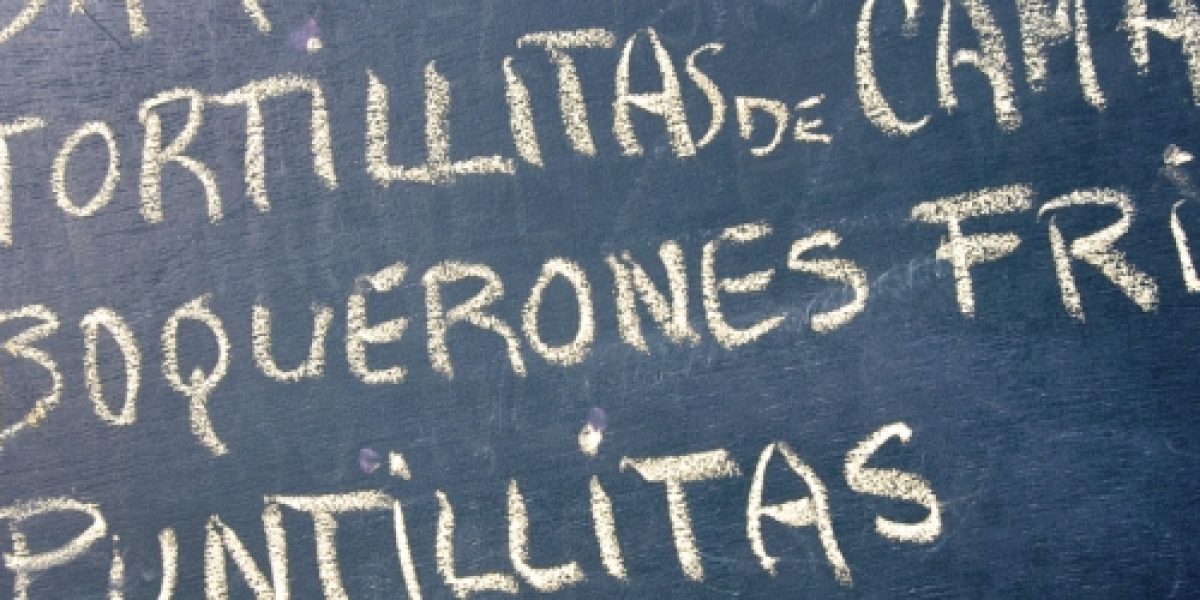 TORTILLITAS DE CAMA
BOQUERONES FRI
PUNTILLITAS